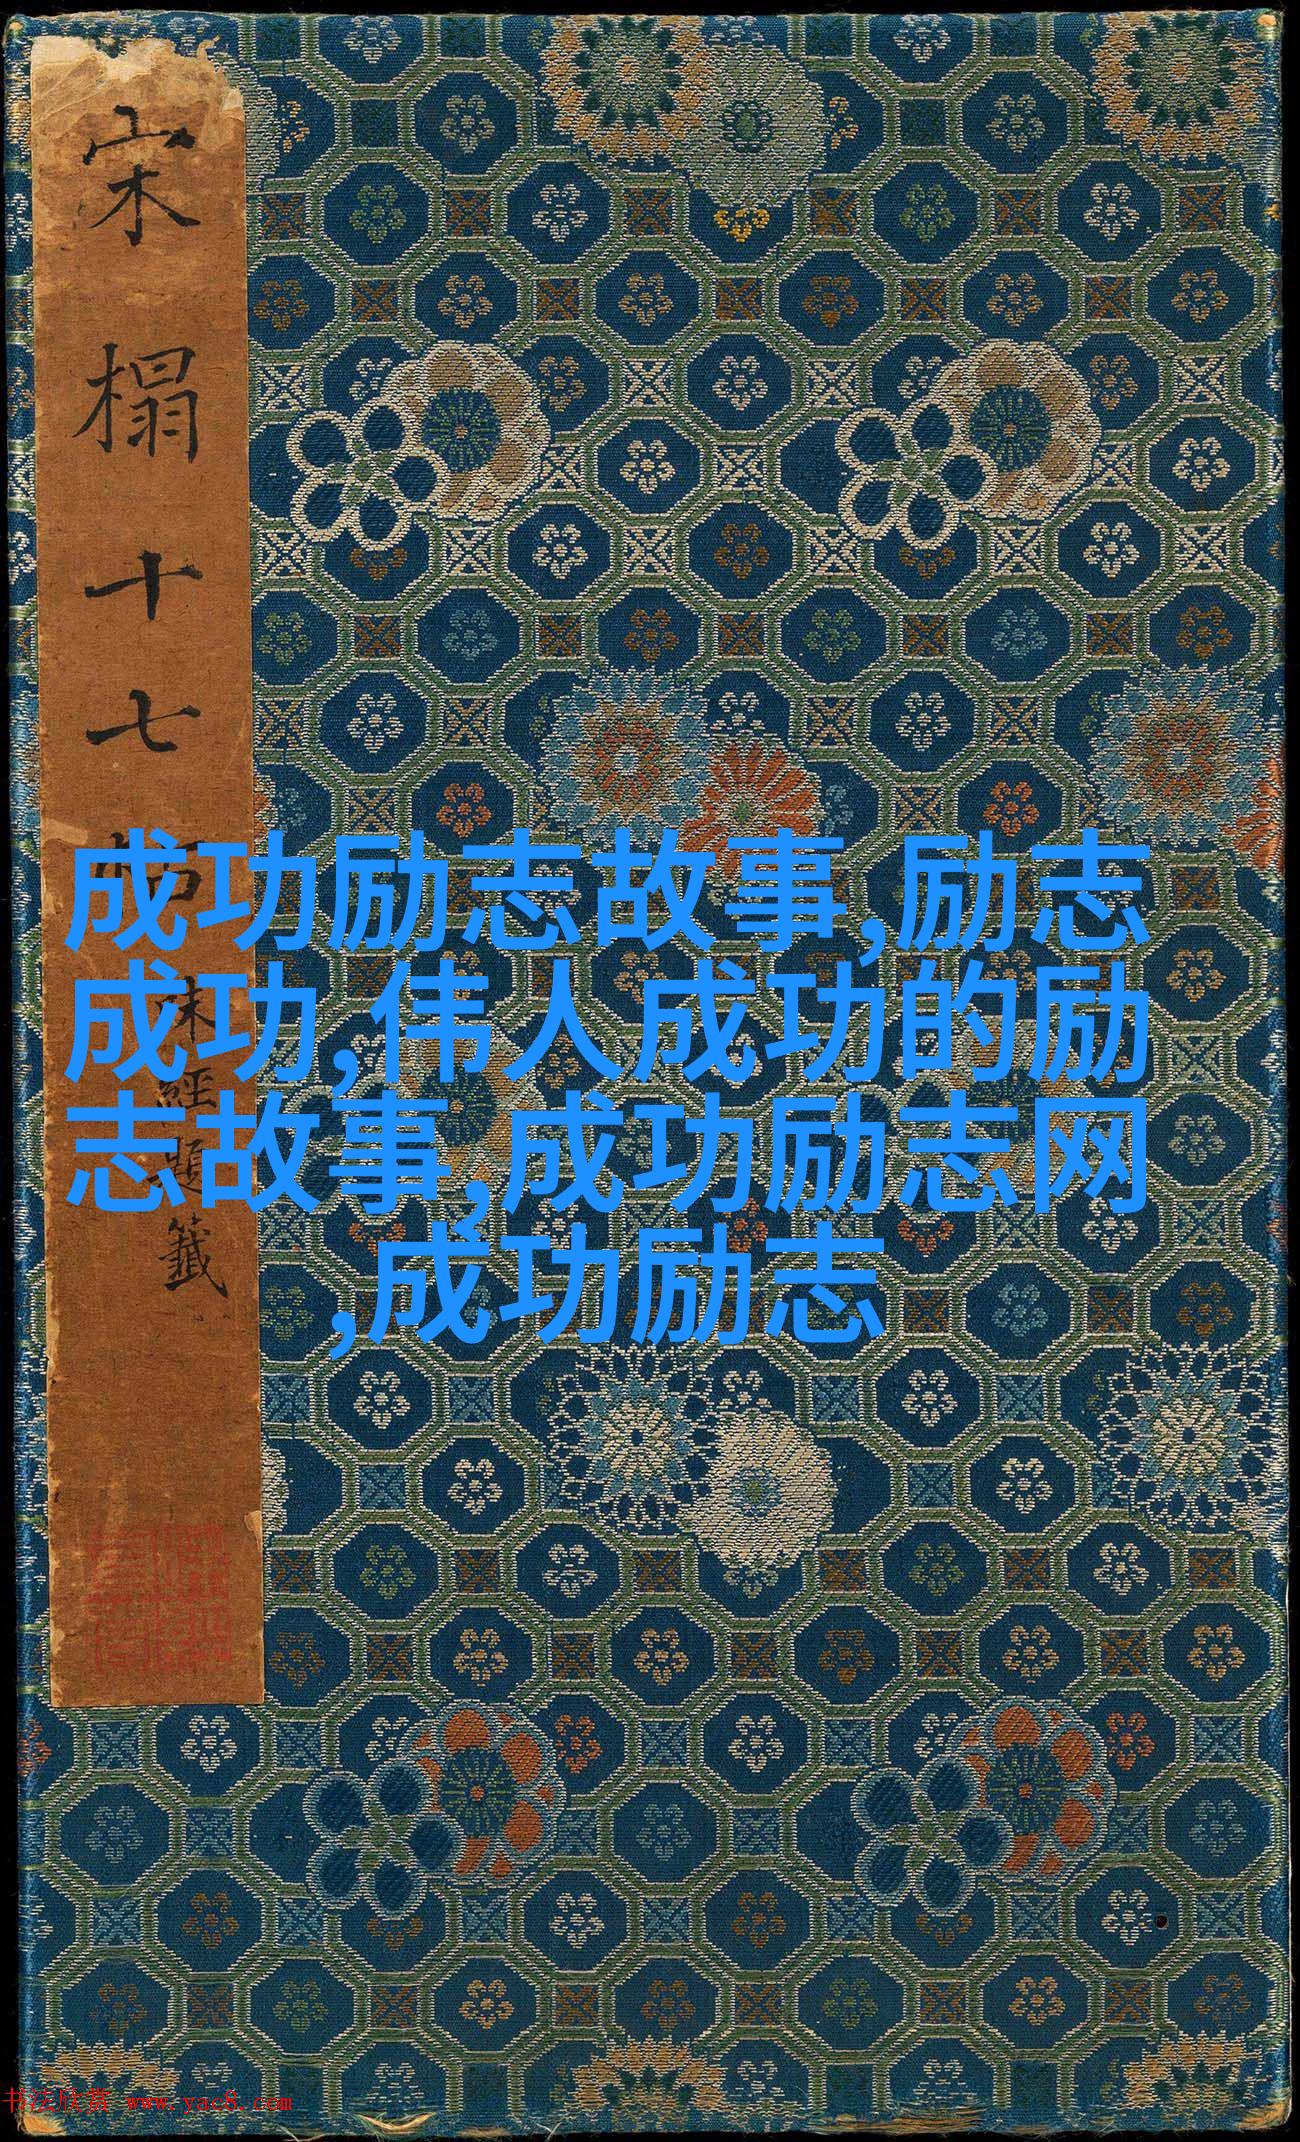 宋榻十七帖
味經題籤
成功励志故事,励志
成功,伟人成功的励
志故事,成功励志网
,成功励志
书法欣赏 www.yac8.com